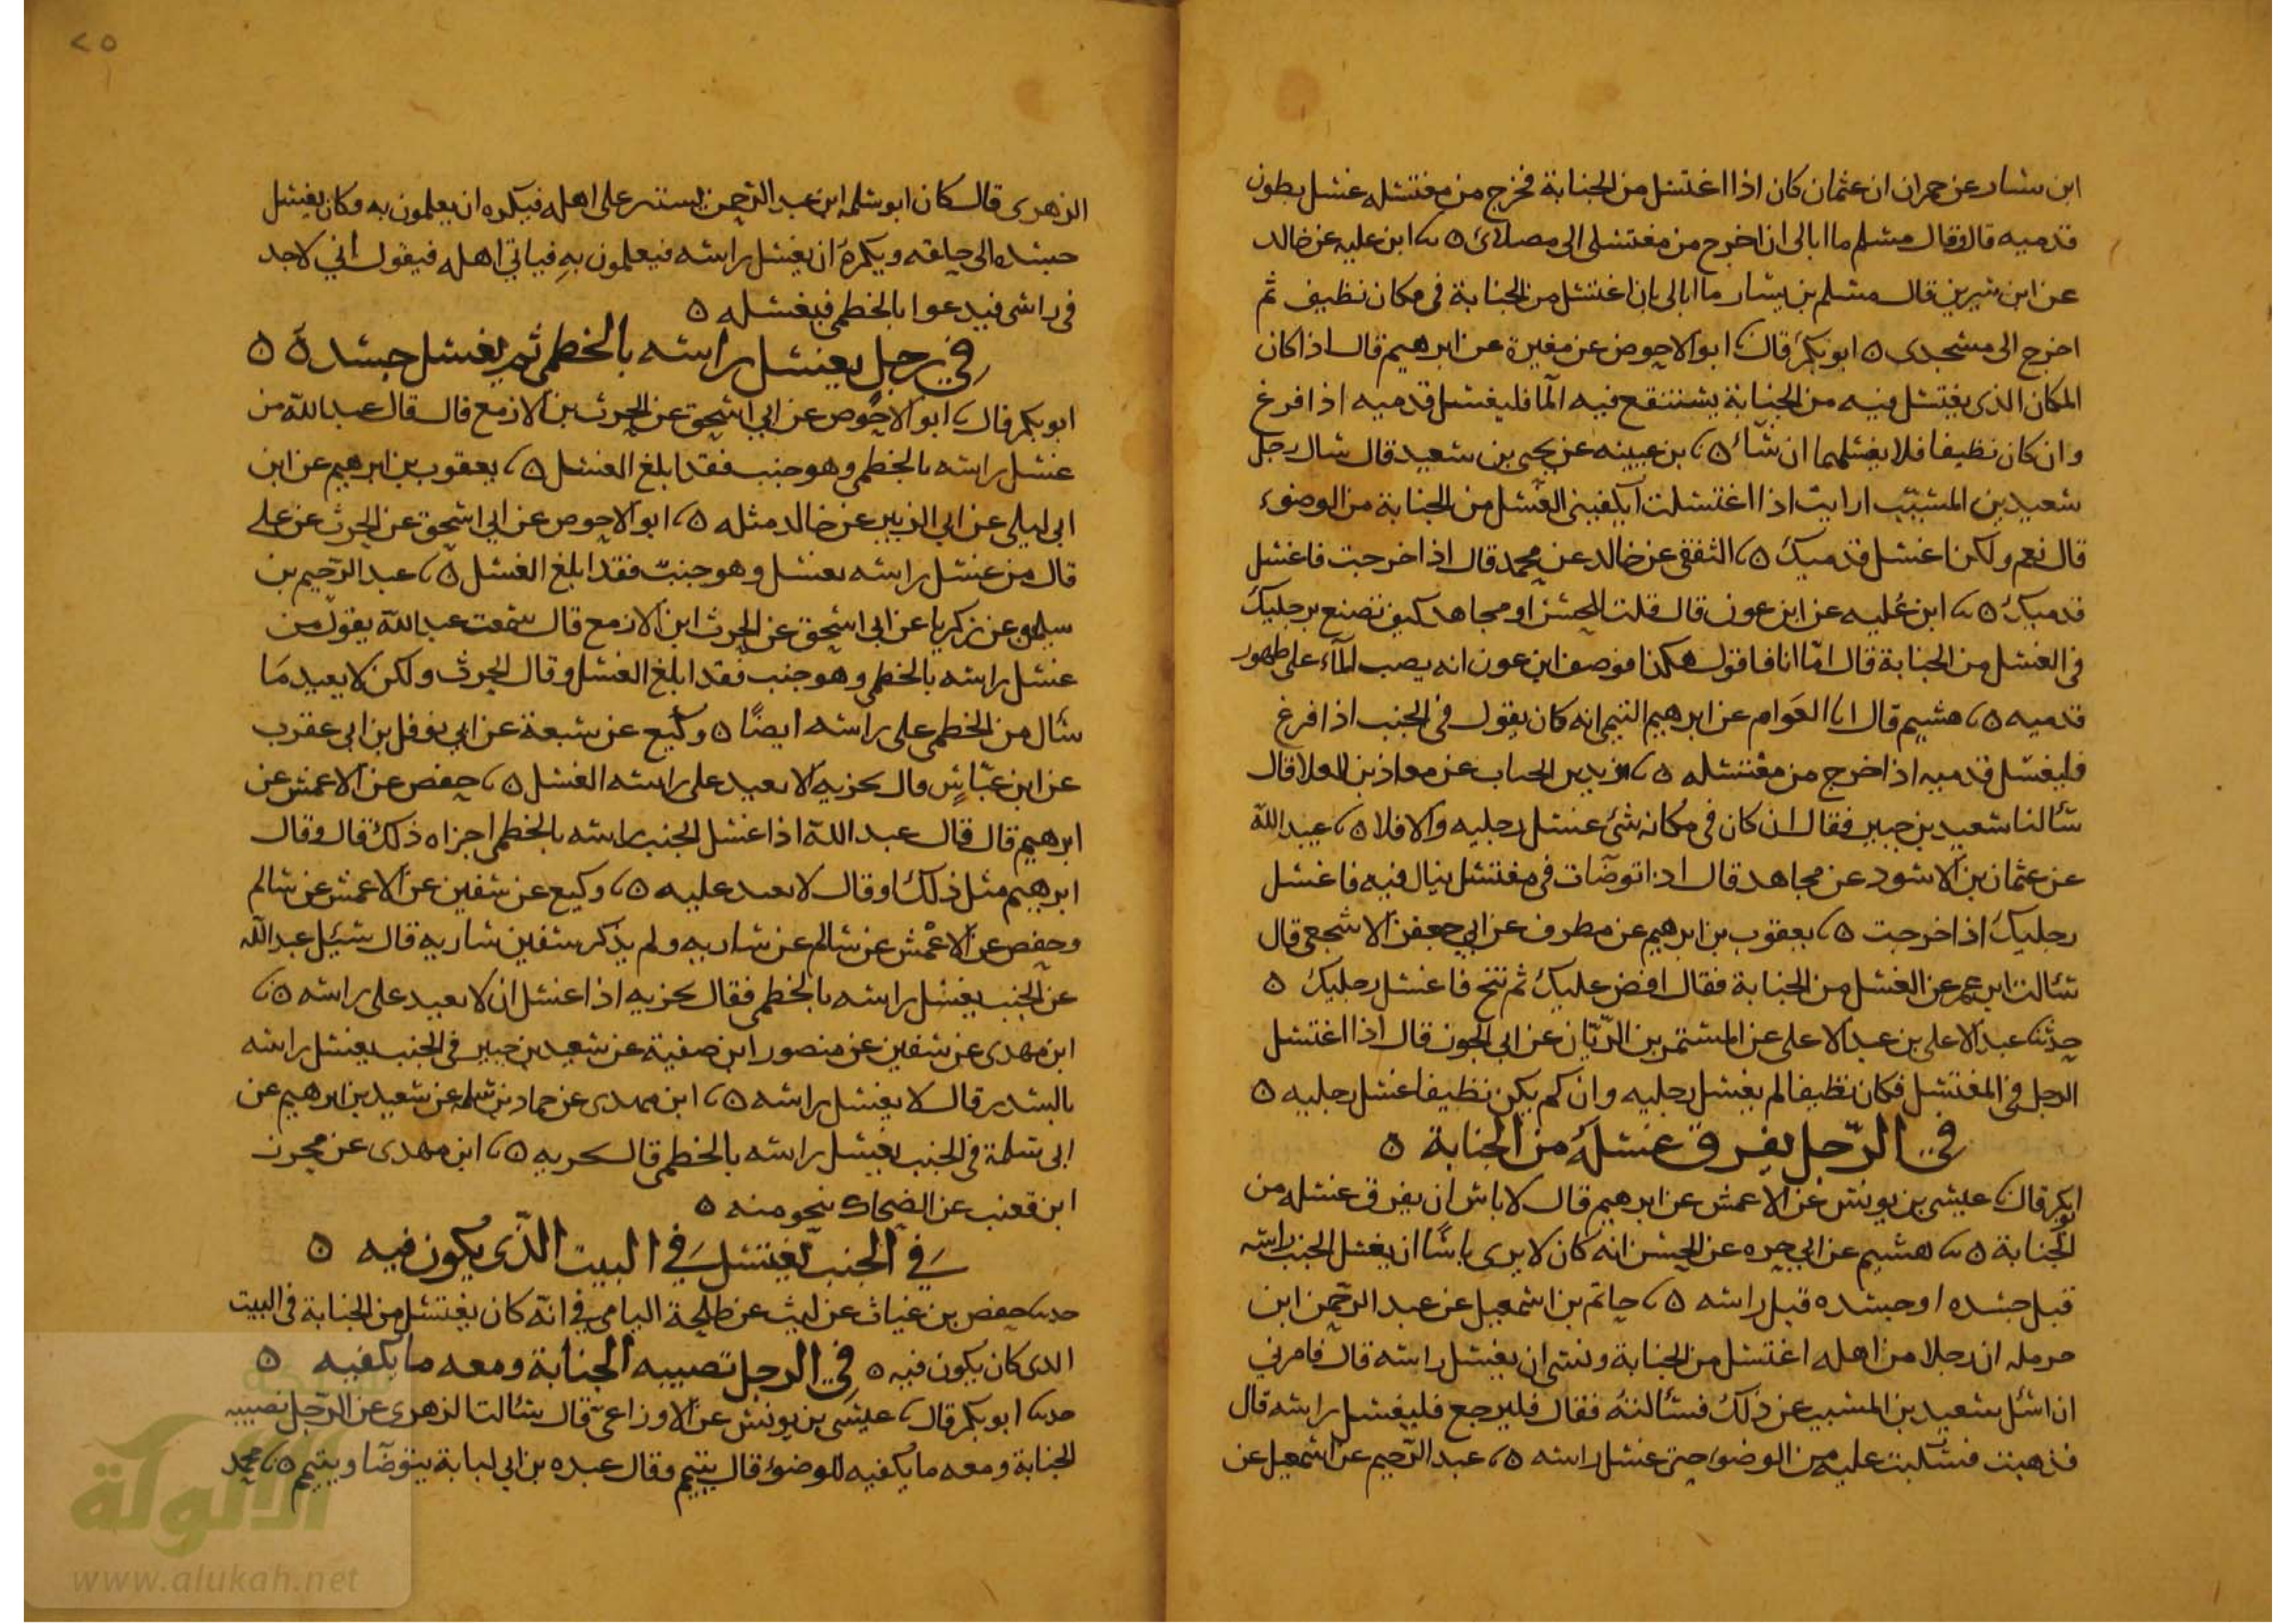 ابن يسار عن حمران ان عثمان كان اذا اغتسل من الجنابة فخرج من مغتسله غسل بطون
قدميه قال وقال مسلم ما ابالى ان اخرج من مغتسلى الى مصلاى ٥ نا ابن عليه عن خالد
عن ابن سيرين قال مسلم بن يسار ما ابالى بان اغتسل من الجنابة فى مكان نظيف ثم
اخرج الى مسجدى ٥ ابو بكر قال نا ابو الاحوص عن مغيرة عن ابرهيم قال اذا كان
المكان الذى يغتسل فيه من الجنابة يستنقع فيه الما فليغسل قدميه اذا فرغ
وان كان نظيفا فلا يغسلهما ان شاء ٥ نا بن عيينه عن يحيى بن سعيد قال سال رجل
سعيد بن المسيب ارايت اذا اغتسلت ايكفينى الغسل من الجنابة من الوضوء
قال نعم ولكن اغسل قدميك ٥ نا الثقفى عن خالد عن محمد قال اذا خرجت فاغسل
قدميك ٥ نا ابن عليه عن ابن عون قال قلت للحسن او مجاهد كيف تصنع برجليك
فى الغسل من الجنابة قال اما انا فاقول هكذا فوصف ابن عون انه يصب الماء على ظهور
قدميه ٥ نا هشيم قال انا العوام عن ابرهيم التيمى انه كان يقول فى الجنب اذا فرغ
فليغسل قدميه اذا خرج من مغتسله ٥ نا زيد بن الحباب عن معاذ بن العلا قال
سألنا سعيد بن جبير فقال ان كان فى مكانه شئ غسل رجليه والا فلا ٥ نا عبيد الله
عن عثمان بن الاسود عن مجاهد قال اذا توضات فى مغتسل يبال فيه فاغسل
رجليك اذا خرجت ٥ نا يعقوب بن ابرهيم عن مطرف عن ابى جعفر الاشجعى قال
سألت ابن عمر عن الغسل من الجنابة فقال افض عليك ثم تنح فاغسل رجليك ٥
حدثنا عبد الاعلى بن عبد الاعلى عن المستمر بن الريان عن ابى الجون قال اذا اغتسل
الرجل فى المغتسل فكان نظيفا لم يغسل رجليه وان لم يكن نظيفا غسل رجليه ٥
فى الرجل يفرق غسله من الجنابة ٥
ابو بكر قال نا عيسى بن يونس عن الاعمش عن ابرهيم قال لا باس ان يفرق غسله من
الجنابة ٥ نا هشيم عن ابى حره عن الحسن انه كان لا يرى باسًا ان يغسل الجنب راسه
قبل جسده او جسده قبل راسه ٥ نا حاتم بن اسمعيل عن عبد الرحمن ابن
حرمله ان رجلا من اهله اغتسل من الجنابة ونسى ان يغسل راسه قال فامرنى
ان اسئل سعيد بن المسيب عن ذلك فسألته فقال فليرجع فليغسل راسه قال
فذهبت فسكبت عليه من الوضوء حتى غسل راسه ٥ نا عبد الرحيم عن اسمعيل عن
٢٥
الزهرى قال كان ابو سلمه ابن عبد الرحمن يستتر على اهله فيكره ان يعلمون به فكان يغسل
جسده الى حلقه ويكره ان يغسل راسه فيعلمون به فياتى اهله فيقول انى لاجد
فى راسى فيدعوا بالخطمى فيغسله ٥
فى رجل يغسل راسه بالخطمى ثم يغسل جسده ٥
ابو بكر قال نا ابو الاحوص عن ابى اسحق عن الحرث بن الازمع قال قال عبد الله من
غسل راسه بالخطمى وهو جنب فقد ابلغ الغسل ٥ نا يعقوب بن ابرهيم عن ابن
ابى ليلى عن ابى الزبير عن خالد مثله ٥ نا ابو الاحوص عن ابى اسحق عن الحرث عن على
قال من غسل راسه بغسل وهو جنب فقد ابلغ الغسل ٥ نا عبد الرحيم بن
سليمن عن زكريا عن ابى اسحق عن الحرث ابن الازمع قال سمعت عبد الله يقول من
غسل راسه بالخطمى وهو جنب فقد ابلغ الغسل وقال الحرث ولكن لا يعيد ما
سال من الخطمى على راسه ايضًا ٥ وكيع عن شعبة عن ابى نوفل بن ابى عقرب
عن ابن عباس قال يجزيه الا يعيد على راسه الغسل ٥ نا حفص عن الاعمش عن
ابرهيم قال قال عبد الله اذا غسل الجنب راسه بالخطمى اجزاه ذلك قال وقال
ابرهيم مثل ذلك او قال لا يعيد عليه ٥ نا وكيع عن سفين عن الاعمش عن سالم
وحفص عن الاعمش عن سالم عن ساربه ولم يذكر سفين ساربه قال سئل عبد الله
عن الجنب يغسل راسه بالخطمى فقال يجزيه اذا غسل ان لا يعيد على راسه ٥ نا
ابن مهدى عن سفين عن منصور ابن صفية عن سعيد بن جبير فى الجنب يغسل راسه
بالسدر قال لا يغسل راسه ٥ نا ابن مهدى عن حماد بن سلمه عن سعيد بن ابرهيم عن
ابى سلمة فى الجنب يغسل راسه بالخطمى قال يجزيه ٥ نا ابن مهدى عن محرز
ابن قعنب عن الضحاك نحو منه ٥
فى الجنب يغتسل فى البيت الذى يكون فيه ٥
حدثنا حفص بن غياث عن ليث عن طلحة اليامى فى انه كان يغتسل من الجنابة فى البيت
الذى كان يكون فيه ٥ فى الرجل تصيبه الجنابة ومعه ما يكفيه ٥
حدثنا ابو بكر قال نا عيسى بن يونس عن الاوزاعى قال سئالت الزهرى عن الرجل تصيبه
الجنابة ومعه ما يكفيه للوضوء قال يتيمم وقال عبده بن ابى لبابة يتوضا ويتيمم ٥ نا محمد
شبكة
الألوكة
www.alukah.net